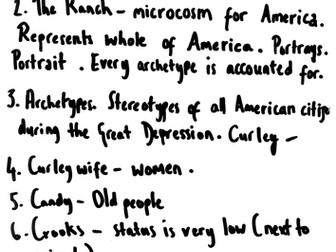 2. The Ranch - microcosm for America.
Represents whole of America. Portrays.
Portrait. Every archetype is accounted for.
3. Archetypes. Stereotypes of all American
during the Great Depression. Curley -
4. Curley wife - women.
5. Candy - Old people
6. Crooks - status is very low (next to